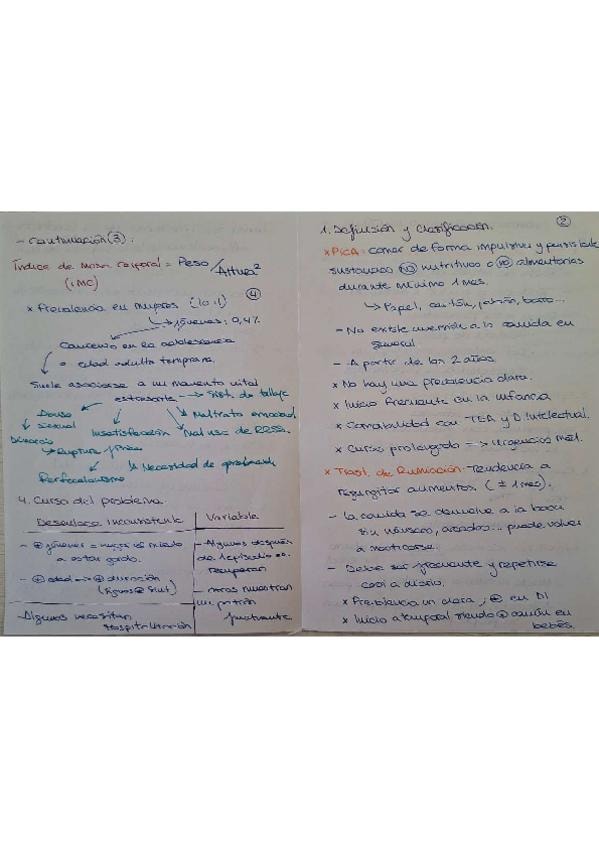 - continuación (3).
Índice de masa corporal = Peso/Altura²
(IMC)
④
× Prevalencia en mujeres (10:1)
↳ jóvenes: 0,4%
Comienzo en la adolescencia
o edad adulta temprana.
Suele asociarse a un momento vital
estresante → Sist. de tallaje
Abuso sexual
Maltrato emocional
Divorcio
Insatisfacción
Mal uso de RRSS.
Ruptura
Necesidad de
Perfeccionismo
4. Curso del problema.
Desenlace inconsistente | Variable
- ⊕ jóvenes = niegan el miedo
a estar gordo.
- ⊕ edad → ⊕ duración
(signos ⊕ sínt)
- Algunos necesitan
hospitalización
- Algunos después
de 1 episodio se
recuperan
- otros muestran
un patrón
fluctuante
②
1. Definición y clasificación.
× PICA: comer de forma impulsiva y persistente
sustancias NO nutritivas o NO alimentarias
durante mínimo 1 mes.
↳ Papel, cartón, jabón, barro...
- No existe aversión a la comida en
general
- A partir de los 2 años.
× No hay una prevalencia clara.
× Inicio frecuente en la infancia
× Comorbilidad con TEA y D. Intelectual.
× Curso prolongado → urgencias méd.
× Trast. de Rumiación: Tendencia a
regurgitar alimentos. (± 1 mes).
- La comida se devuelve a la boca
sin náuseas, arcadas... puede volver
a masticarse.
- Debe ser frecuente y repetirse
casi a diario.
× Prevalencia un clara, ⊕ en DI
× Inicio atemporal siendo ⊕ común en
bebés.